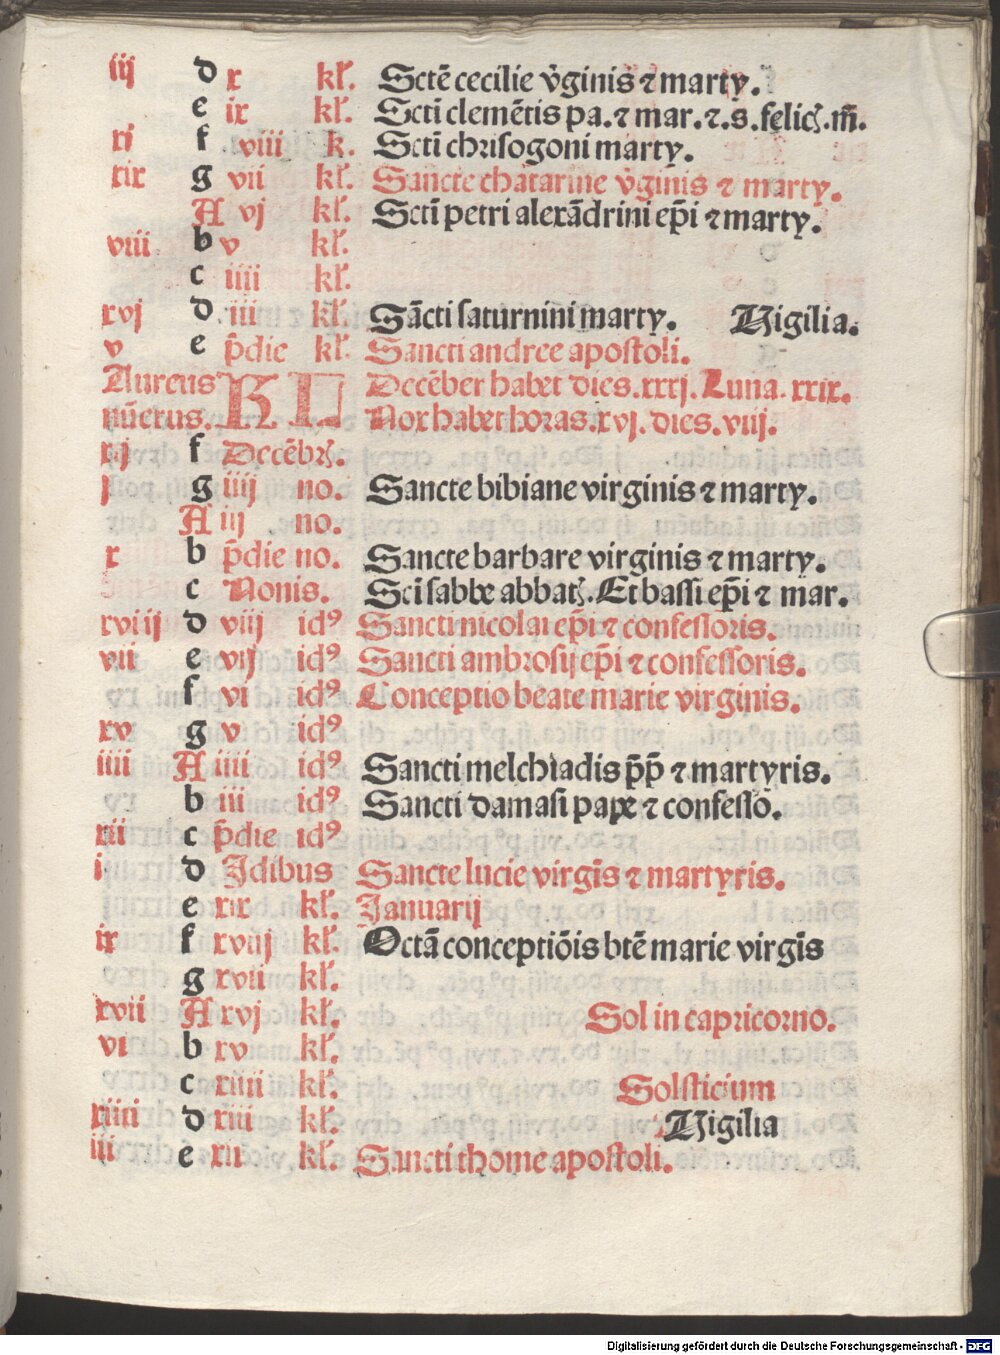 iij d x kl̓. Sctē cecilie v̓ginis ⁊ marty.
e ix kl̓. Scti clemētis pa. ⁊ mar. ⁊. s. felicꝭ. m̄.
xi f viii k. Scti chrisogoni marty.
xix g vii kl̓. Sancte chatarine v̓ginis ⁊ marty.
A vj kl̓. Scti petri alexādrini ep̄i ⁊ marty.
viii b v kl̓.
c iiii kl̓.
xvj d iii kl̓. Sācti saturnini marty. Uigilia.
v e p̄die kl̓. Sancti andree apostoli.
Aureus nūerus. KL Decēber habet dies. xxxj. Luna. xxix.
Nox habet horas. xvj. dies. viij.
xij f Decēbrꝭ.
j g iiij no. Sancte bibiane virginis ⁊ marty.
A iij no.
x b p̄die no. Sancte barbare virginis ⁊ marty.
c Nonis. Sci sabbe abbatꝭ. Et bassi ep̄i ⁊ mar.
xviij d viij idꝰ Sancti nicolai ep̄i ⁊ confessoris.
vii e vij idꝰ Sancti ambrosij ep̄i ⁊ confessoris.
f vi idꝰ Conceptio beate marie virginis.
xv g v idꝰ
iiii A iiii idꝰ Sancti melchiadis p̄p̄ ⁊ martyris.
b iii idꝰ Sancti damasi pape ⁊ confesso.
xii c p̄die idꝰ
i d Jdibus Sancte lucie virgīs ⁊ martyris.
e xix kl̓. Januarij
ix f xviij kl̓. Octā conceptiōis btē marie virgīs
g xvii kl̓.
xvii A xvj kl̓. Sol in capricorno.
vi b xv kl̓.
c xiiii kl̓. Solsticium
xiiii d xiii kl̓. Uigilia
iii e xii kl̓. Sancti thome apostoli.
Digitalisierung gefördert durch die Deutsche Forschungsgemeinschaft - DFG